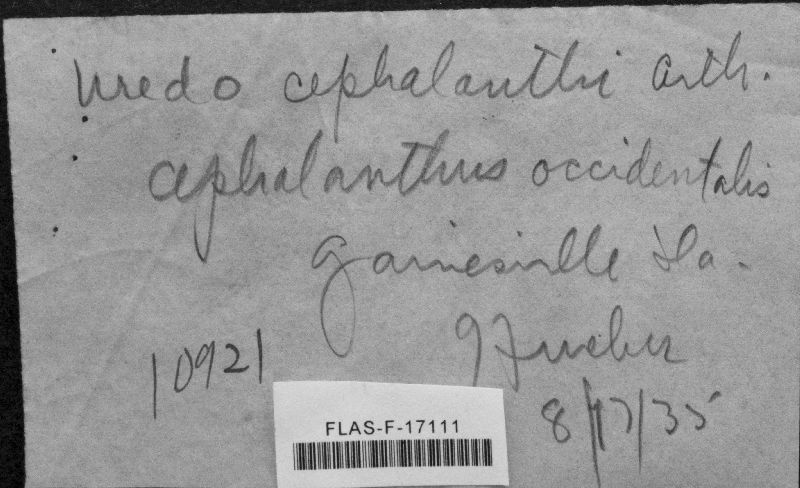 Uredo cephalanthi Arth.
Cephalanthus occidentalis
Gainesville Fla.
10921
8/17/35
FLAS-F-17111